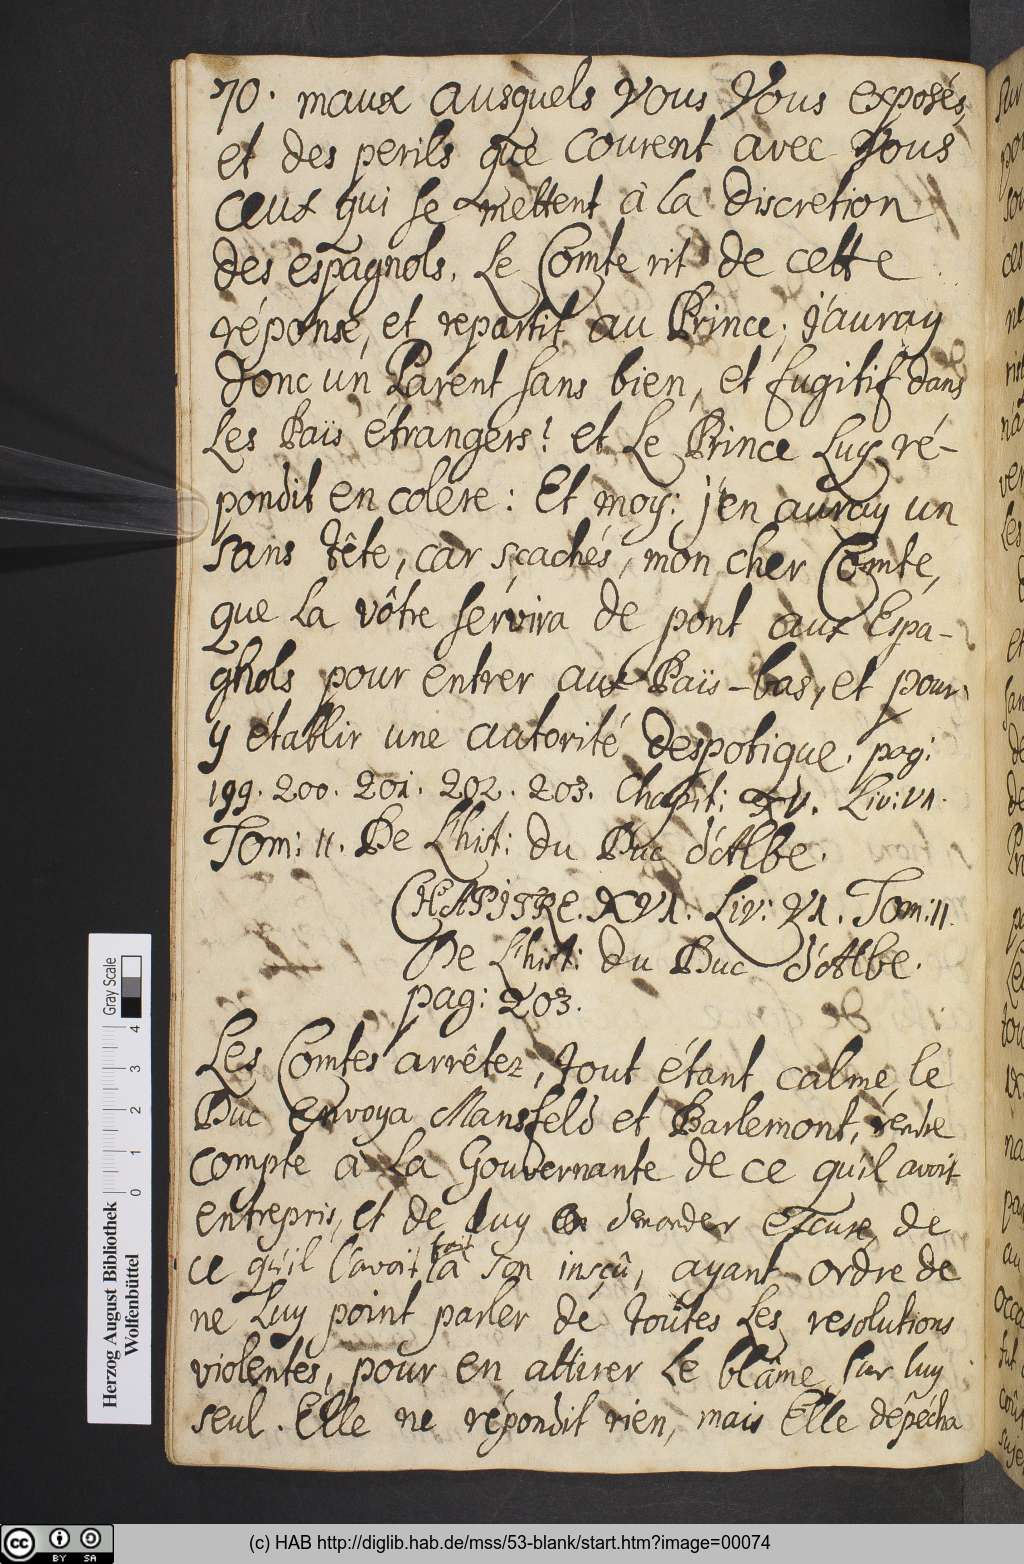 70. maux ausquels vous vous exposés,
et des perils que courent avec vous
ceux qui se mettent à la discretion
des espagnols. Le Comte rit de cette
réponse, et repartit au Prince; j'auray
donc un Parent sans bien, et fugitif dans
les Païs étrangers? et le Prince luy ré-
pondit en colere: Et moy: j'en auray un
sans tête, car sçachés, mon cher Comte,
que la vôtre servira de pont aux Espa-
gnols pour entrer aux Païs-bas, et pour
y établir une autorité despotique. pag:
199. 200. 201. 202. 203. Chapit: XV. Liv: VI.
Tom: II. De L'hist: du Duc d'Albe.
CHAPITRE. XVI. Liv: VI. Tom: II.
De L'hist: du Duc d'Albe.
pag: 203.
Les Comtes arrêtez, tout étant calme, le
Duc envoya Mansfeld et Barlemont, rendre
compte à la Gouvernante de ce qu'il avoit
entrepris, et de luy en demander excuse, de
ce qu'il l'avoit fait à son insçû, ayant ordre de
ne luy point parler de toutes les resolutions
violentes, pour en attirer le blâme sur luy
seul. Elle ne répondit rien, mais Elle dépêcha
Herzog August Bibliothek
Wolfenbüttel
0 1 2 3 4
Gray Scale
cc BY SA
(c) HAB http://diglib.hab.de/mss/53-blank/start.htm?image=00074